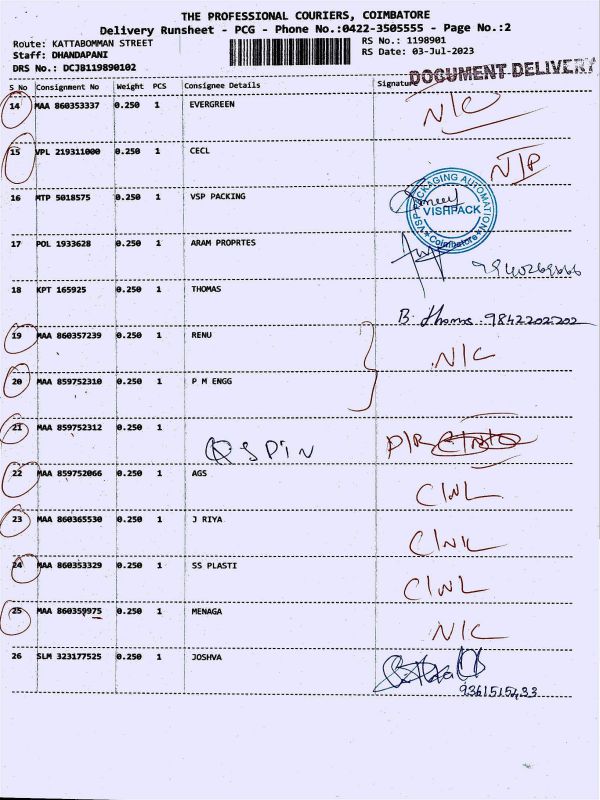 THE PROFESSIONAL COURIERS, COIMBATORE
Delivery Runsheet - PCG - Phone No.:0422-3505555 - Page No.:2
Route: KATTABOMMAN STREET RS No.: 1198901
Staff: DHANDAPANI RS Date: 03-Jul-2023
DRS No.: DCJB119890102
DOCUMENT DELIVERY
S No Consignment No Weight PCS Consignee Details Signature
14 MAA 860353337 0.250 1 EVERGREEN N/C
15 VPL 219311000 0.250 1 CECL N/P
16 MTP 5018575 0.250 1 VSP PACKING
VSP PACKAGING AUTOMATION
VISHPACK
Coimbatore
17 POL 1933628 0.250 1 ARAM PROPRTES
18 KPT 165925 0.250 1 THOMAS
B. Thomas. 9842202202
19 MAA 860357239 0.250 1 RENU N/C
20 MAA 859752310 0.250 1 P M ENGG
21 MAA 859752312 0.250 1 QSPIN D/R
22 MAA 859752066 0.250 1 AGS C/NL
23 MAA 860365530 0.250 1 J RIYA C/NL
24 MAA 860353329 0.250 1 SS PLASTI C/NL
25 MAA 860359975 0.250 1 MENAGA N/C
26 SLM 323177525 0.250 1 JOSHVA
9361515433